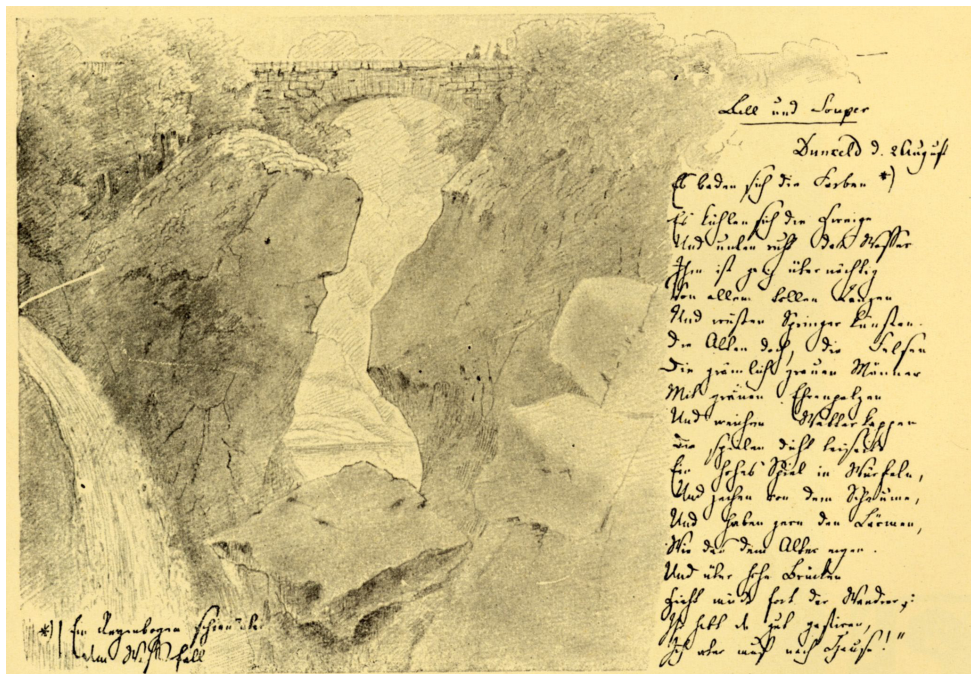 Ball und Souper
Dunkeld d. 2 August
Es baden sich die Farben *)
Es kühlen sich die Zweige
Und unten ruht das Wasser
Ihm ist übernächtig
Von allem tollen Tanzen
Und wüsten Springer künsten.
Die Alten doch, die Felsen
Die grämlich grauen Männer
Mit grünen Ehrenpelzen
Und weichen Wetterkappen
Die spielen dicht beiseite
Ein hohes Spiel in Würfeln,
Und zechen von dem Schaume,
Und haben gern den Lärmen,
Wie das dem Alter eigen.
Und über hohe Brücken
Zieht müde fort der Wandrer:
Ihr habt gut gastiren,
Ich aber muß nach Hause!"
*) Ein Regenbogen schien
dem Wasserfall